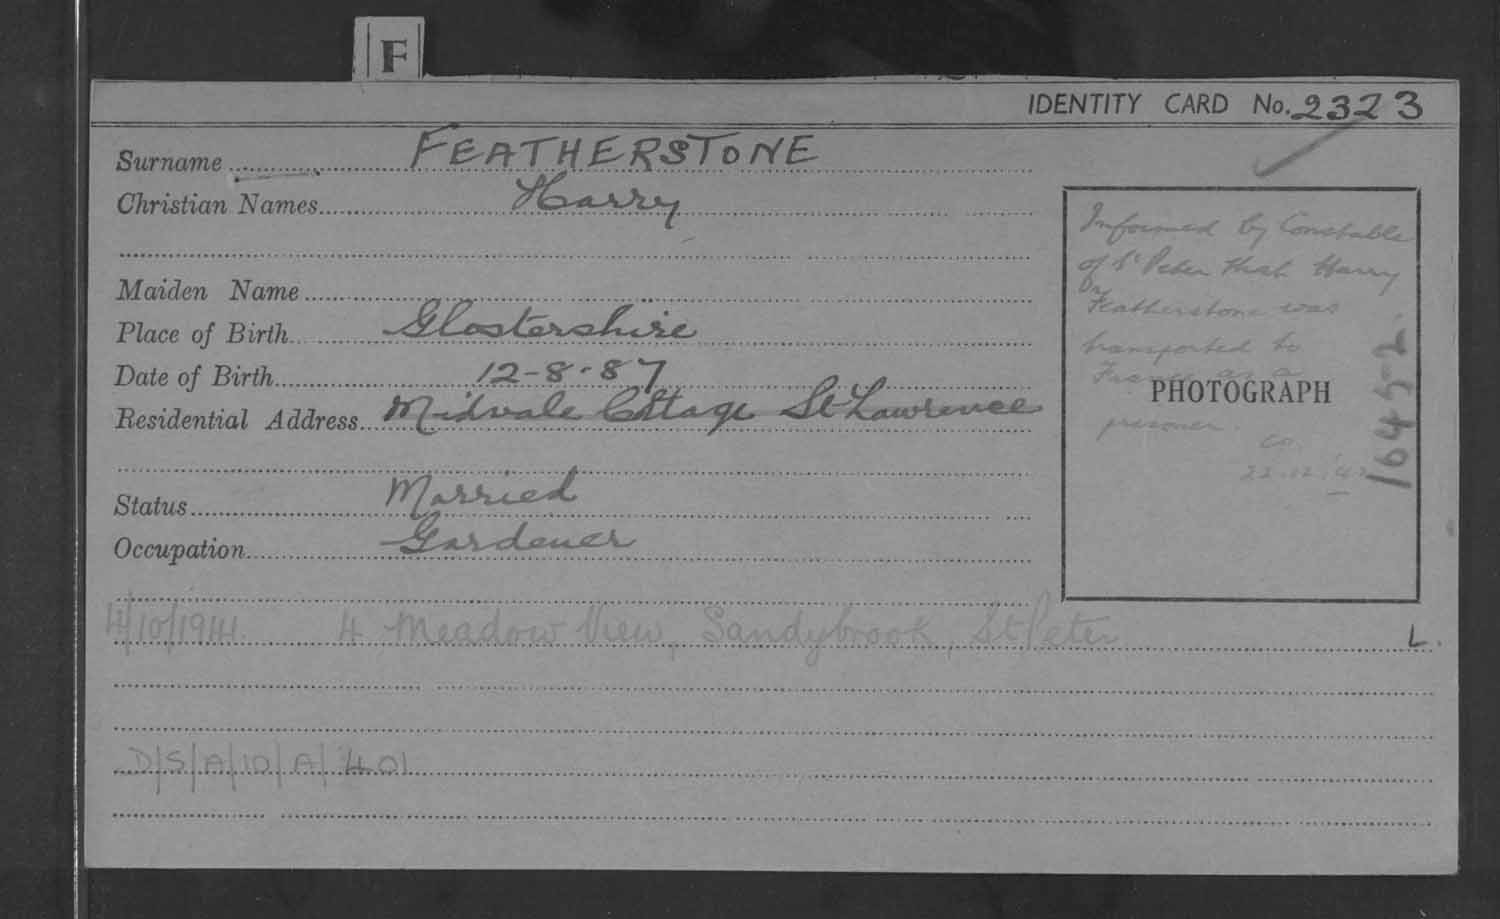 F
IDENTITY CARD No. 2323
Surname FEATHERSTONE
Christian Names Harry
Maiden Name
Place of Birth Glostershire
Date of Birth 12-8-87
Residential Address Midvale Cottage St Lawrence
Status Married
Occupation Gardener
Informed by Constable
of St Peter that Harry
Featherstone was
transported to
France as a
PHOTOGRAPH
prisoner.
22.12.42
4/10/1941. 4 Meadow View, Sandybrook, St Peter
L.
D/S/A/10/A/401